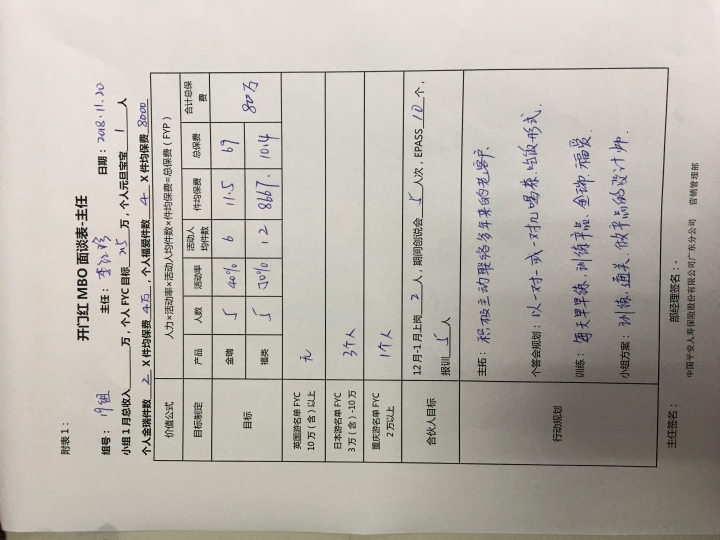 附表1：
开门红 MBO 面谈表-主任
组号： 19组 主任： 李红珍 日期： 2018.11.20
小组1月总收入 万，个人FYC目标 25 万，个人元旦宝宝 1 人
个人金瑞件数 2 X 件均保费 4万，个人福爱件数 4 X 件均保费 8000
价值公式 人力×活动率×活动人均件数×件均保费=总保费（FYP）
目标制定 产品 人数 活动率 活动人均件数 件均保费 总保费 合计总保费
目标 金瑞 5 40% 6 11.5 69 80万
福类 5 50% 12 8667. 10.4
英国游名单 FYC 10万（含）以上
日本游名单 FYC 3万（含）-10万 3个人
重庆游名单 FYC 2万以上 1个人
合伙人目标 12月-1月上岗 2 人，期间创说会 5 人次，EPASS 10 个，
报训 5 人
行动规划 主拓： 积极主动联络多年来的老客户.
个答会规划： 以一对一或一对几喝茶.吃饭形式.
训练： 每天早早练.训练产品.金瑞.福
小组方案： 训练.通关.做产品的设计师.
主任签名： 部经理签名：
中国平安人寿保险股份有限公司广东分公司 营销管理部